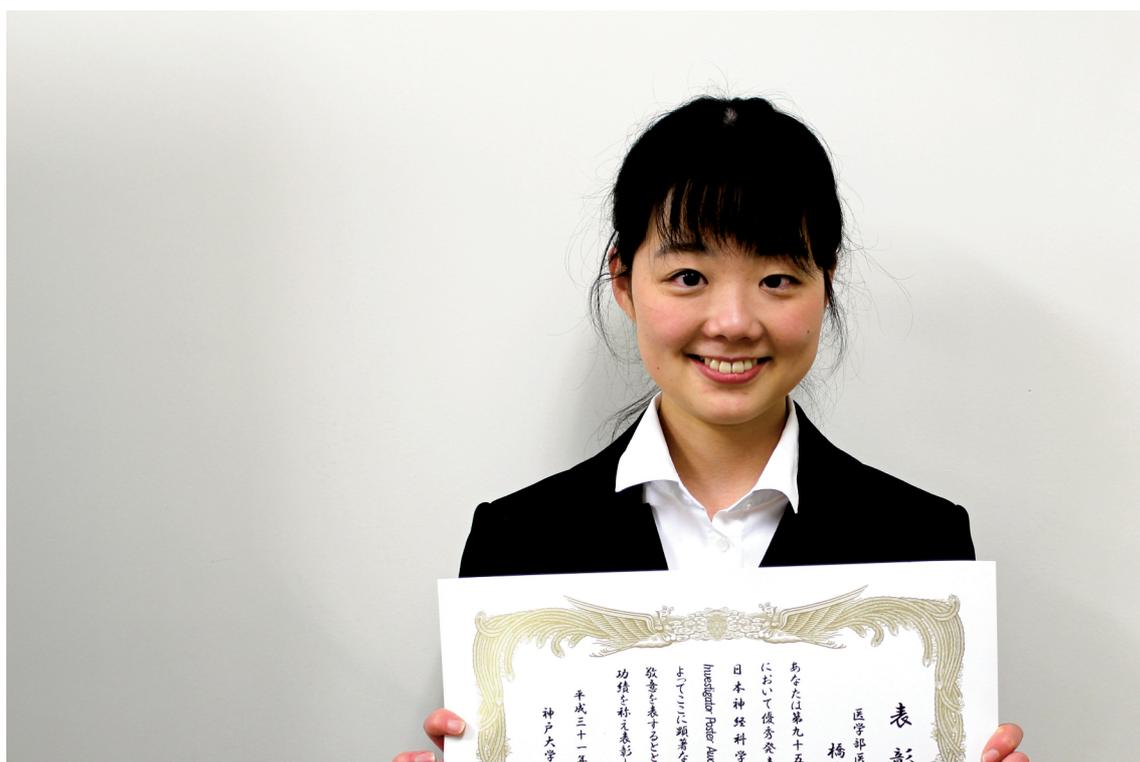 表彰
医学部医
橋
あなたは第九十五
において優秀発表
日本神経科学
Investigator Poster Aw
よってここに顕著な
敬意を表するとと
功績を称え表彰し
平成三十一年
神戸大学